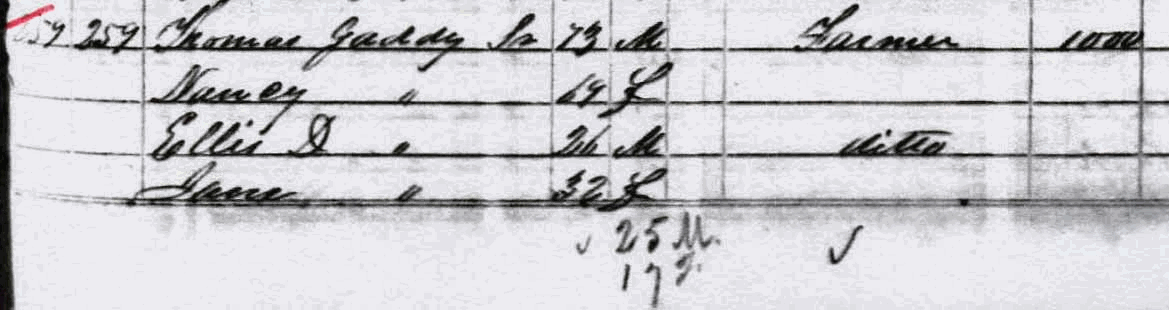 259 259 Thomas Gaddy Sr 73 M Farmer 1000
Nancy " 69 F
Ellis D " 26 M ditto
Jane " 32 F
25 M.
17 F.